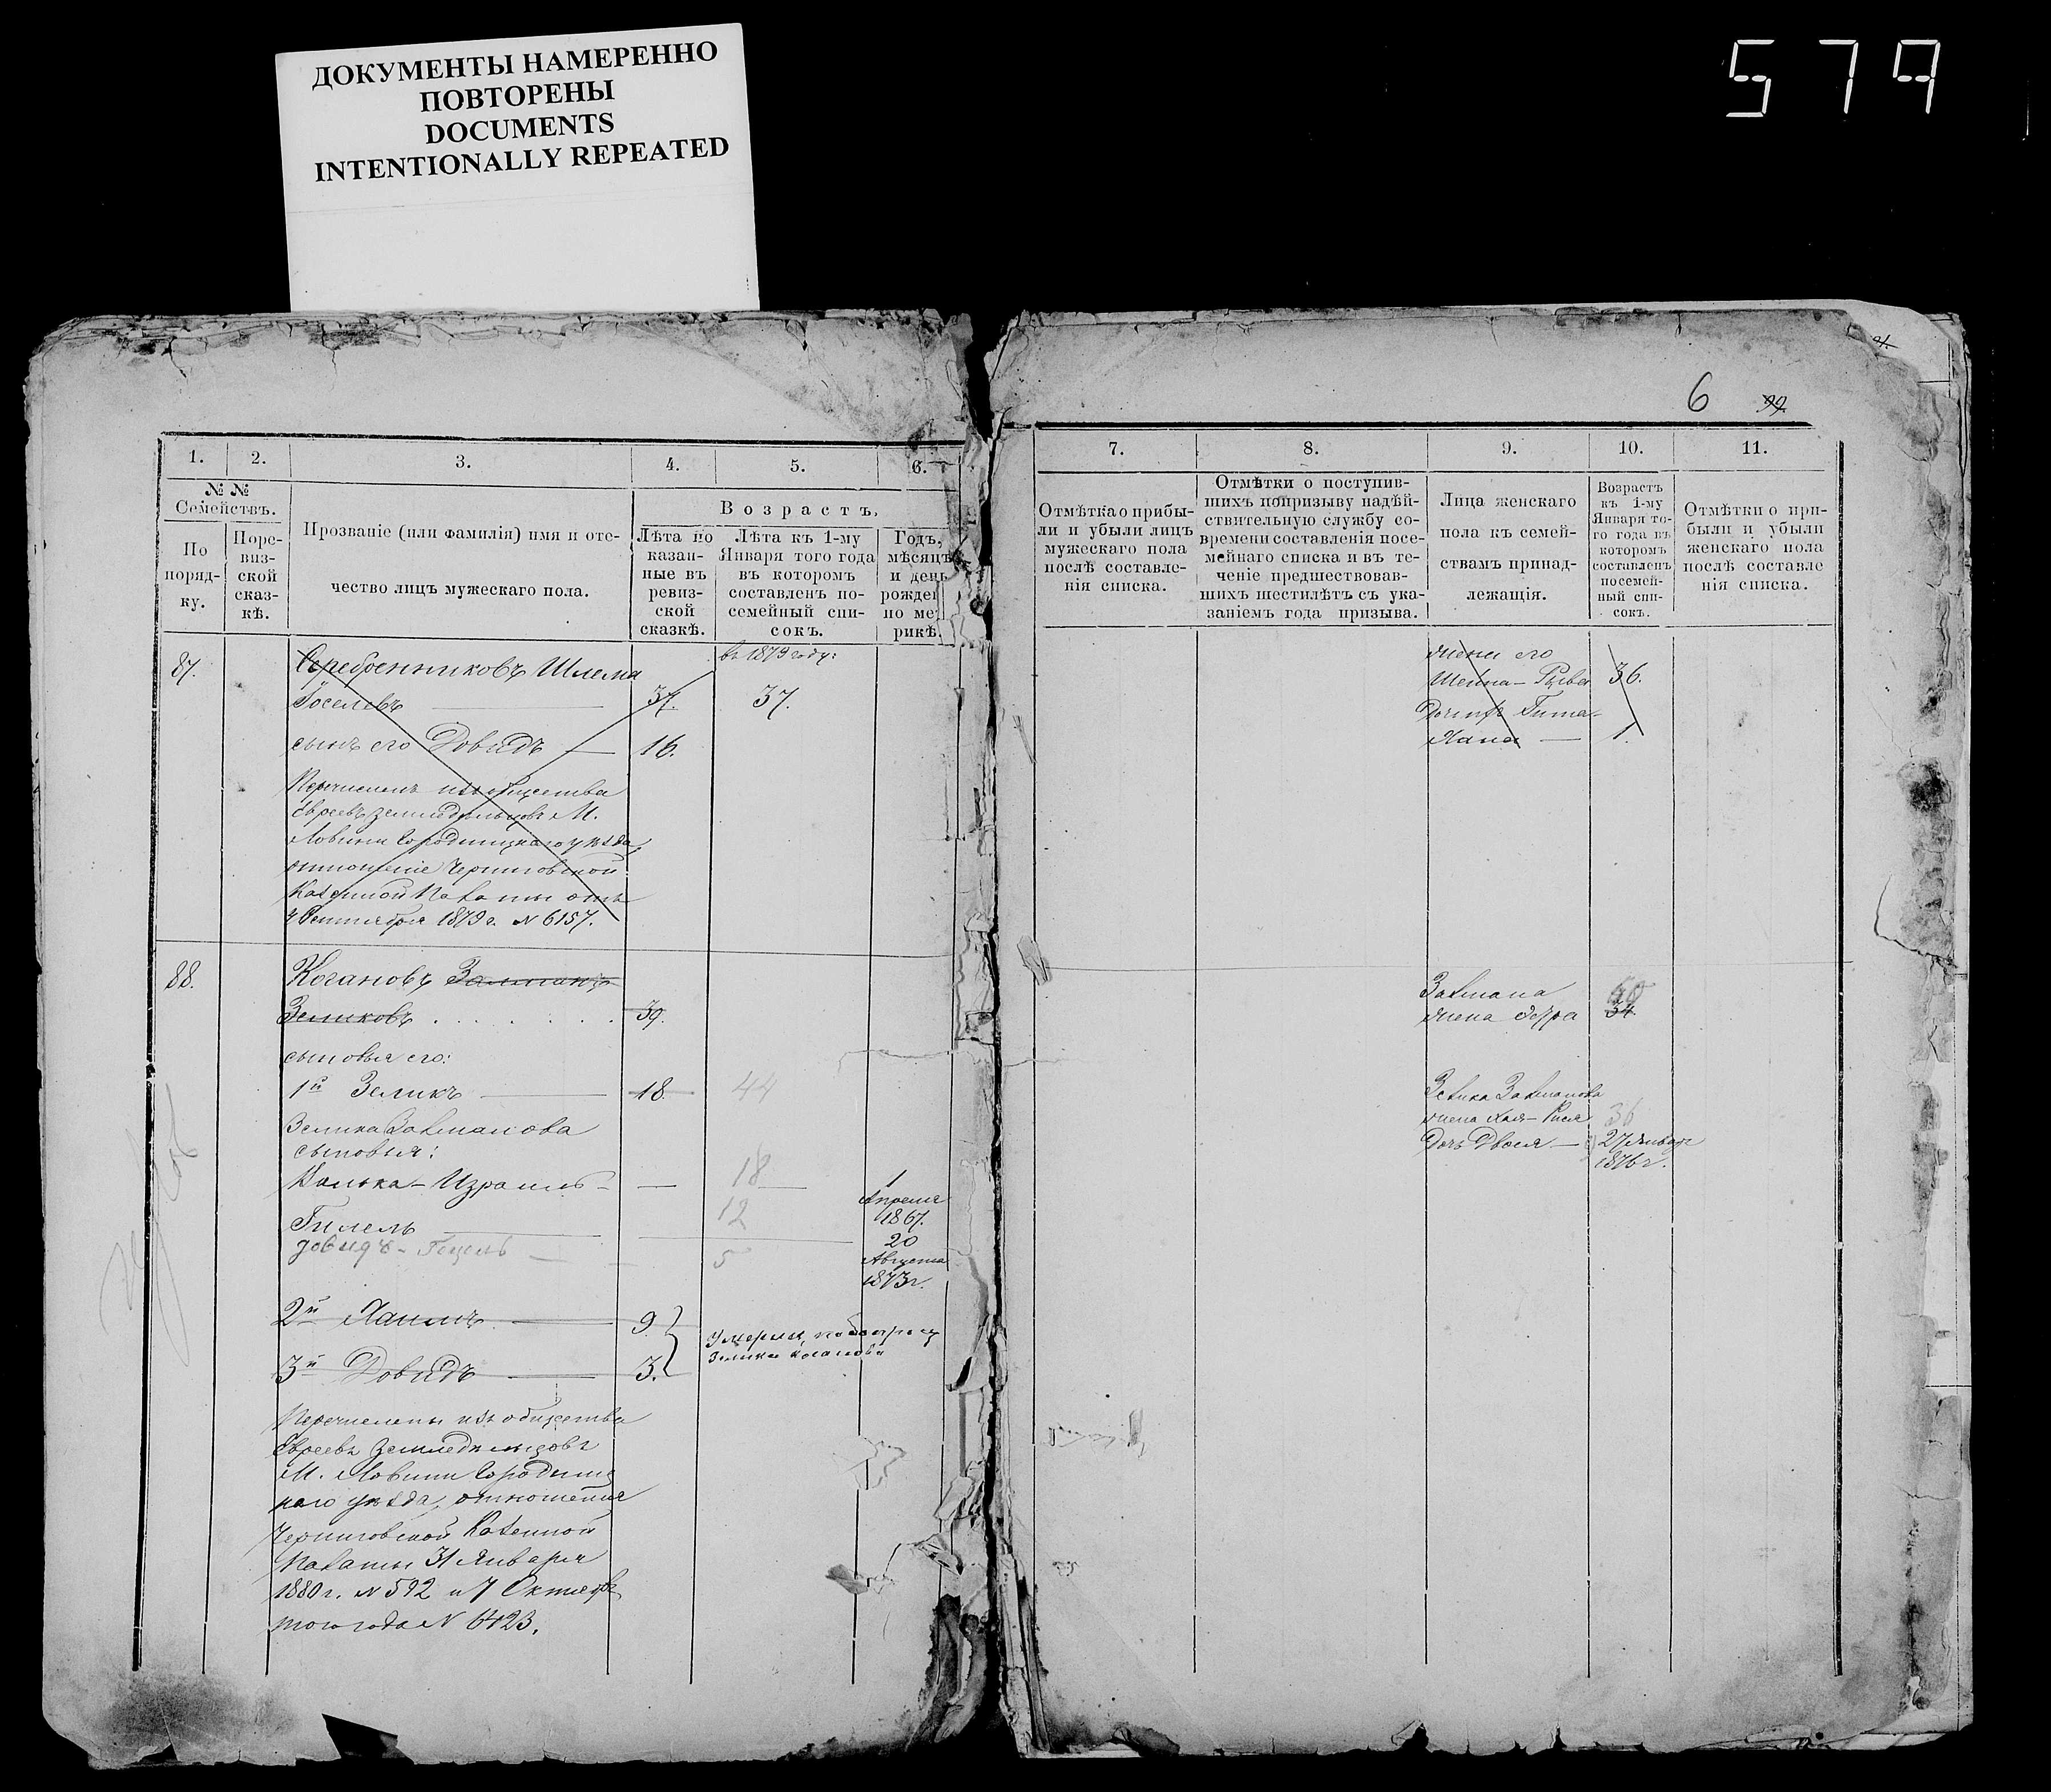 ДОКУМЕНТЫ НАМЕРЕННО
ПОВТОРЕНЫ
DOCUMENTS
INTENTIONALLY REPEATED
579
6 99.
1. 2. 3. 4. 5. 6.
№ №
Семействъ.
По
поряд-
ку.
Поре-
виз-
ской
сказ-
кѣ.
Прозваніе (или фамилія) имя и оте-
чество лицъ мужескаго пола.
Возрастъ,
Лѣта по
казан-
ные въ
ревиз-
ской
сказкѣ.
Лѣта къ 1-му
Января того года
въ которомъ
составленъ по-
семейный спи-
сокъ.
Годъ,
мѣсяцъ
и день
рожден
по ме
рикѣ.
87.
въ 1879 году:
Серебренниковъ Шлема
Іоселевъ 37. 37.
сынъ его Довидъ — 16.
Перечисленъ изъ общества
Евреевъ земледѣльцовъ М.
Ловини Городницкаго уѣзда,
отношеніе Черниговской
Казенной Палаты отъ
4 Сентября 1879 г. № 6157.
88.
Когановъ Залманъ
Зеликовъ . . . . . . . 39.
сыновья его:
1й Зеликъ — 18 44
Зелика Залманова
сыновья:
Израиль — — 18 1
Апреля
1867.
Гилель 12
20
Августа
1873 г.
Довидъ - Гецель — 5
2й Хаимъ — 9
3й Довидъ — 3.
Умерли,
Зелика Коганова
Перечислены изъ общества
Евреевъ Земледѣльцовъ
М. Ловини Городниц
каго уѣзда, отношенія
Черниговской Казенной
Палаты 31 Января
1880 г. № 592 и 7 Октября
того года № 6423.
7. 8. 9. 10. 11.
Отмѣтка о прибы-
ли и убыли лицъ
мужескаго пола
послѣ составле-
нія списка.
Отмѣтки о поступив-
шихъ попризыву надѣй-
ствительную службу со-
времени составленія посе-
мейнаго списка и въ те-
ченіе предшествовав-
шихъ шестилѣтъ съ ука-
заніемъ года призыва.
Лица женскаго
пола къ семей-
ствамъ принад-
лежащія.
Возрастъ
къ 1-му
Января то-
го года въ
которомъ
составленъ
посемей-
ный спи-
сокъ.
Отмѣтки о при-
были и убыли
женскаго пола
послѣ составле
нія списка.
жена его
Шейна - Рива 36.
дочь Гита-
Хана — 1.
Залмана
жена 34.
Зелика Залманова
жена Хая - Рися 36
Дочь Двося — 27 Января
1876 г.